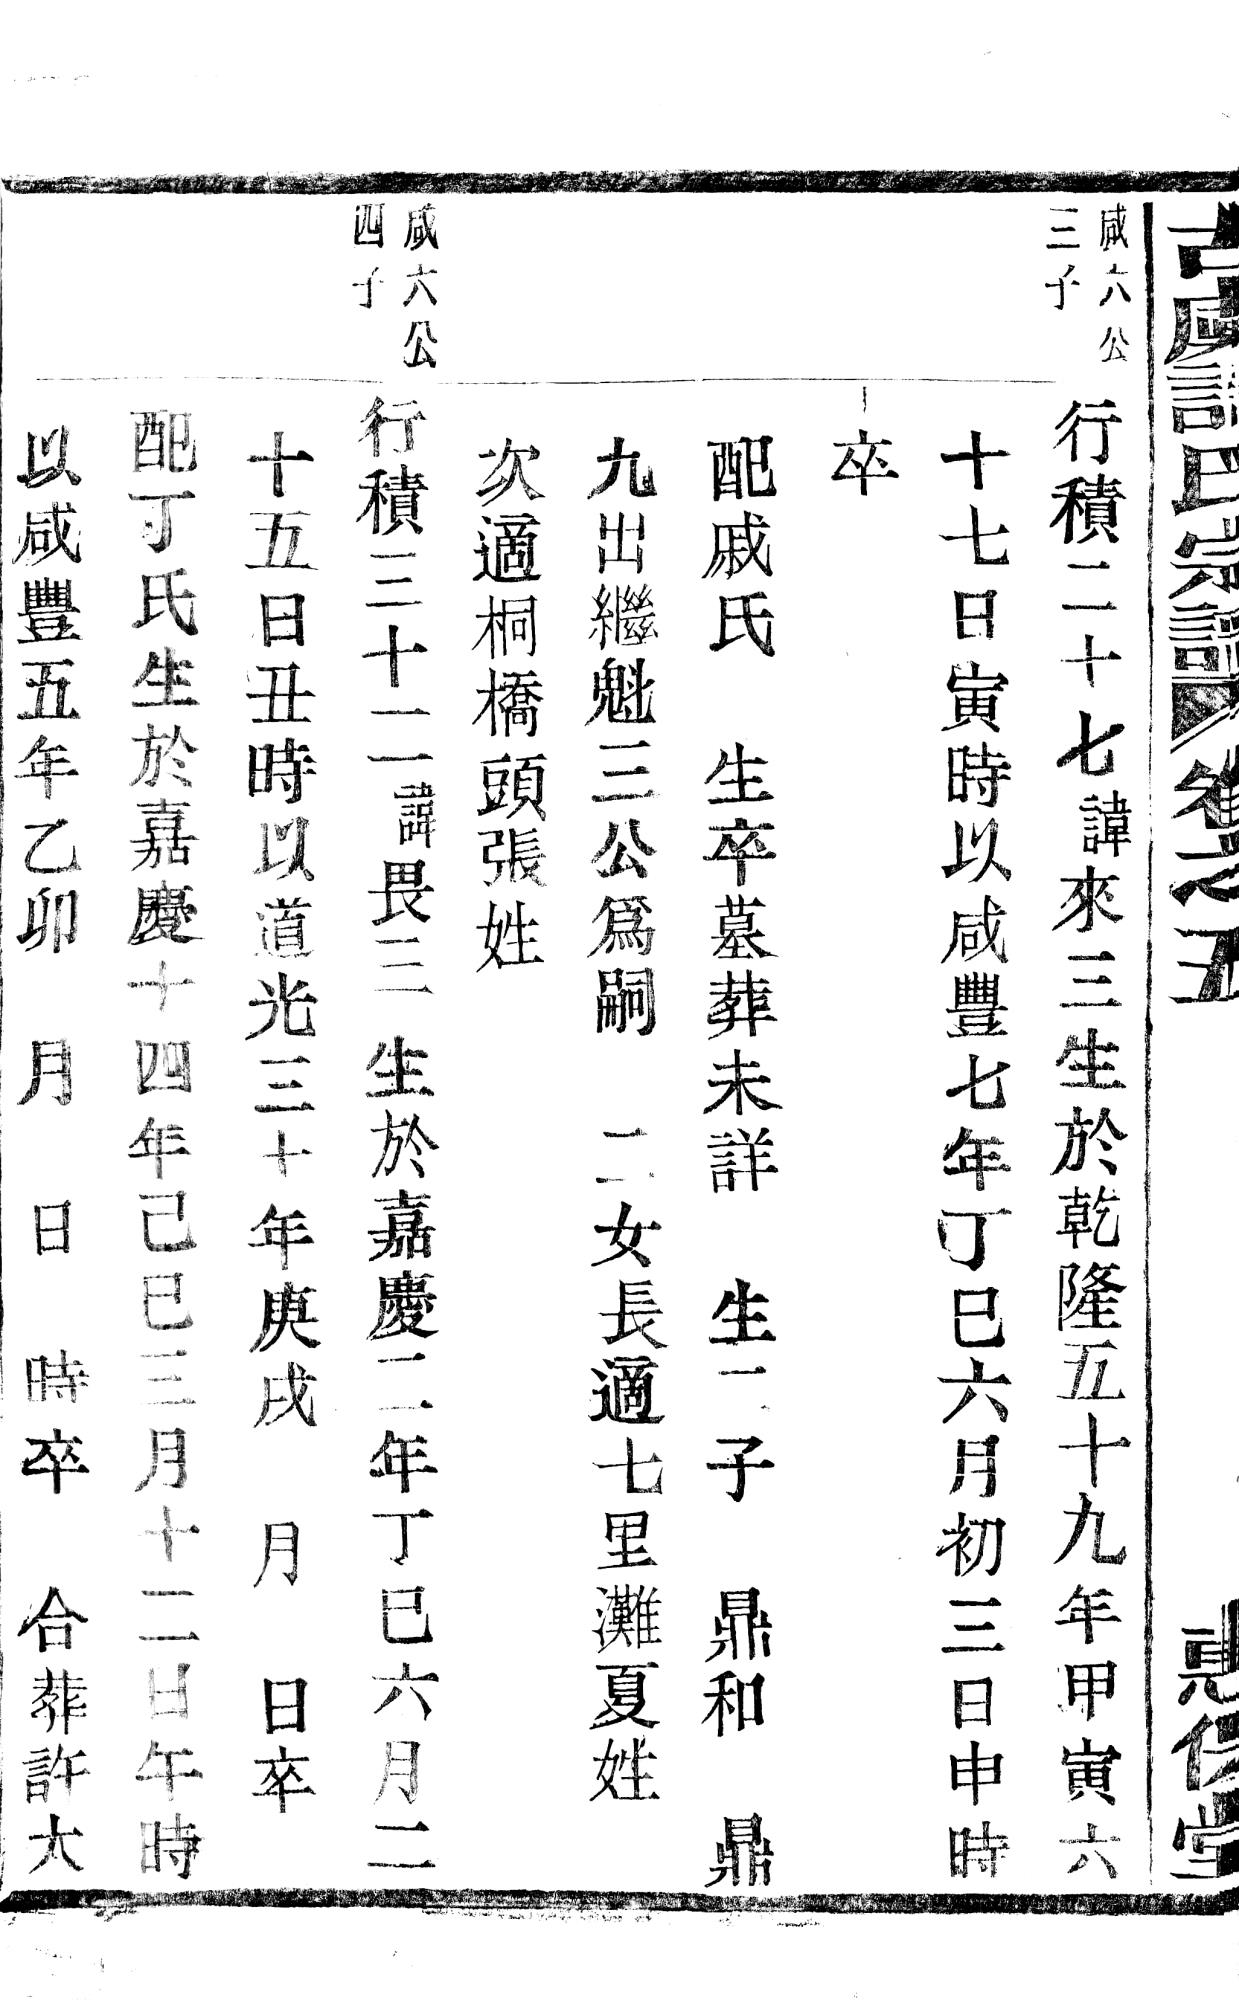 古虞許氏宗譜 卷之五 堂
咸六公
三子
行積二十七諱來三生於乾隆五十九年甲寅六
十七日寅時以咸豐七年丁巳六月初三日申時
卒
配戚氏 生卒墓葬未詳 生二子 鼎和 鼎
九出繼魁三公爲嗣 二女長適七里灘夏姓
次適桐橋頭張姓
咸六公
四子
行積三十二諱畏三 生於嘉慶二年丁巳六月二
十五日丑時以道光三十年庚戌 月 日卒
配丁氏生於嘉慶十四年己巳三月十二日午時
以咸豐五年乙卯 月 日 時卒 合葬許大